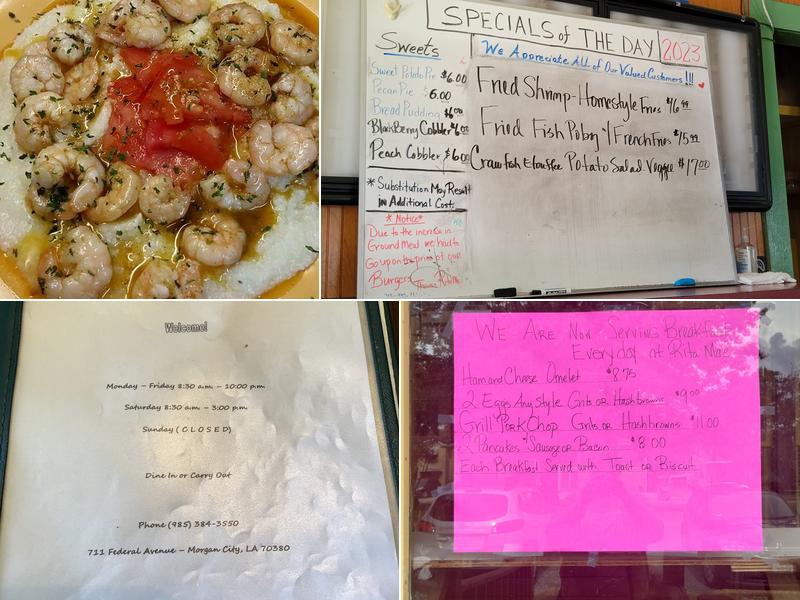 SPECIALS of THE DAY 2023
We Appreciate ALL of Our Valued Customers!!!
Sweets
Sweet Potato Pie $6.00
Pecan Pie $6.00
Bread Pudding $6.00
BlackBerry Cobbler $6.00
Peach Cobbler $6.00
* Substitution May Result
in Additional Cost.
* Notice *
Due to the increase in
Ground Meat we had to
Go up on the price of our
Burgers
Fried Shrimp - Homestyle Fries $16.99
Fried Fish Poboy w/ French Fries $15.99
Crawfish Etouffee Potato Salad Veggie $17.00
Welcome!
Monday – Friday 8:30 a.m. – 10:00 p.m.
Saturday 8:30 a.m. – 3:00 p.m.
Sunday ( C L O S E D)
Dine In or Carry Out
Phone (985) 384-3550
711 Federal Avenue – Morgan City, LA 70380
WE ARE NOW SERVING Breakfast
Everyday at Rita Mae
Ham and Cheese Omelet $8.75
2 Eggs Any Style Grits OR Hashbrowns $9.00
Grill Pork Chop Grits or Hashbrowns $11.00
2 Pancakes Sausage or Bacon $8.00
Each Breakfast Served with Toast or Biscuit